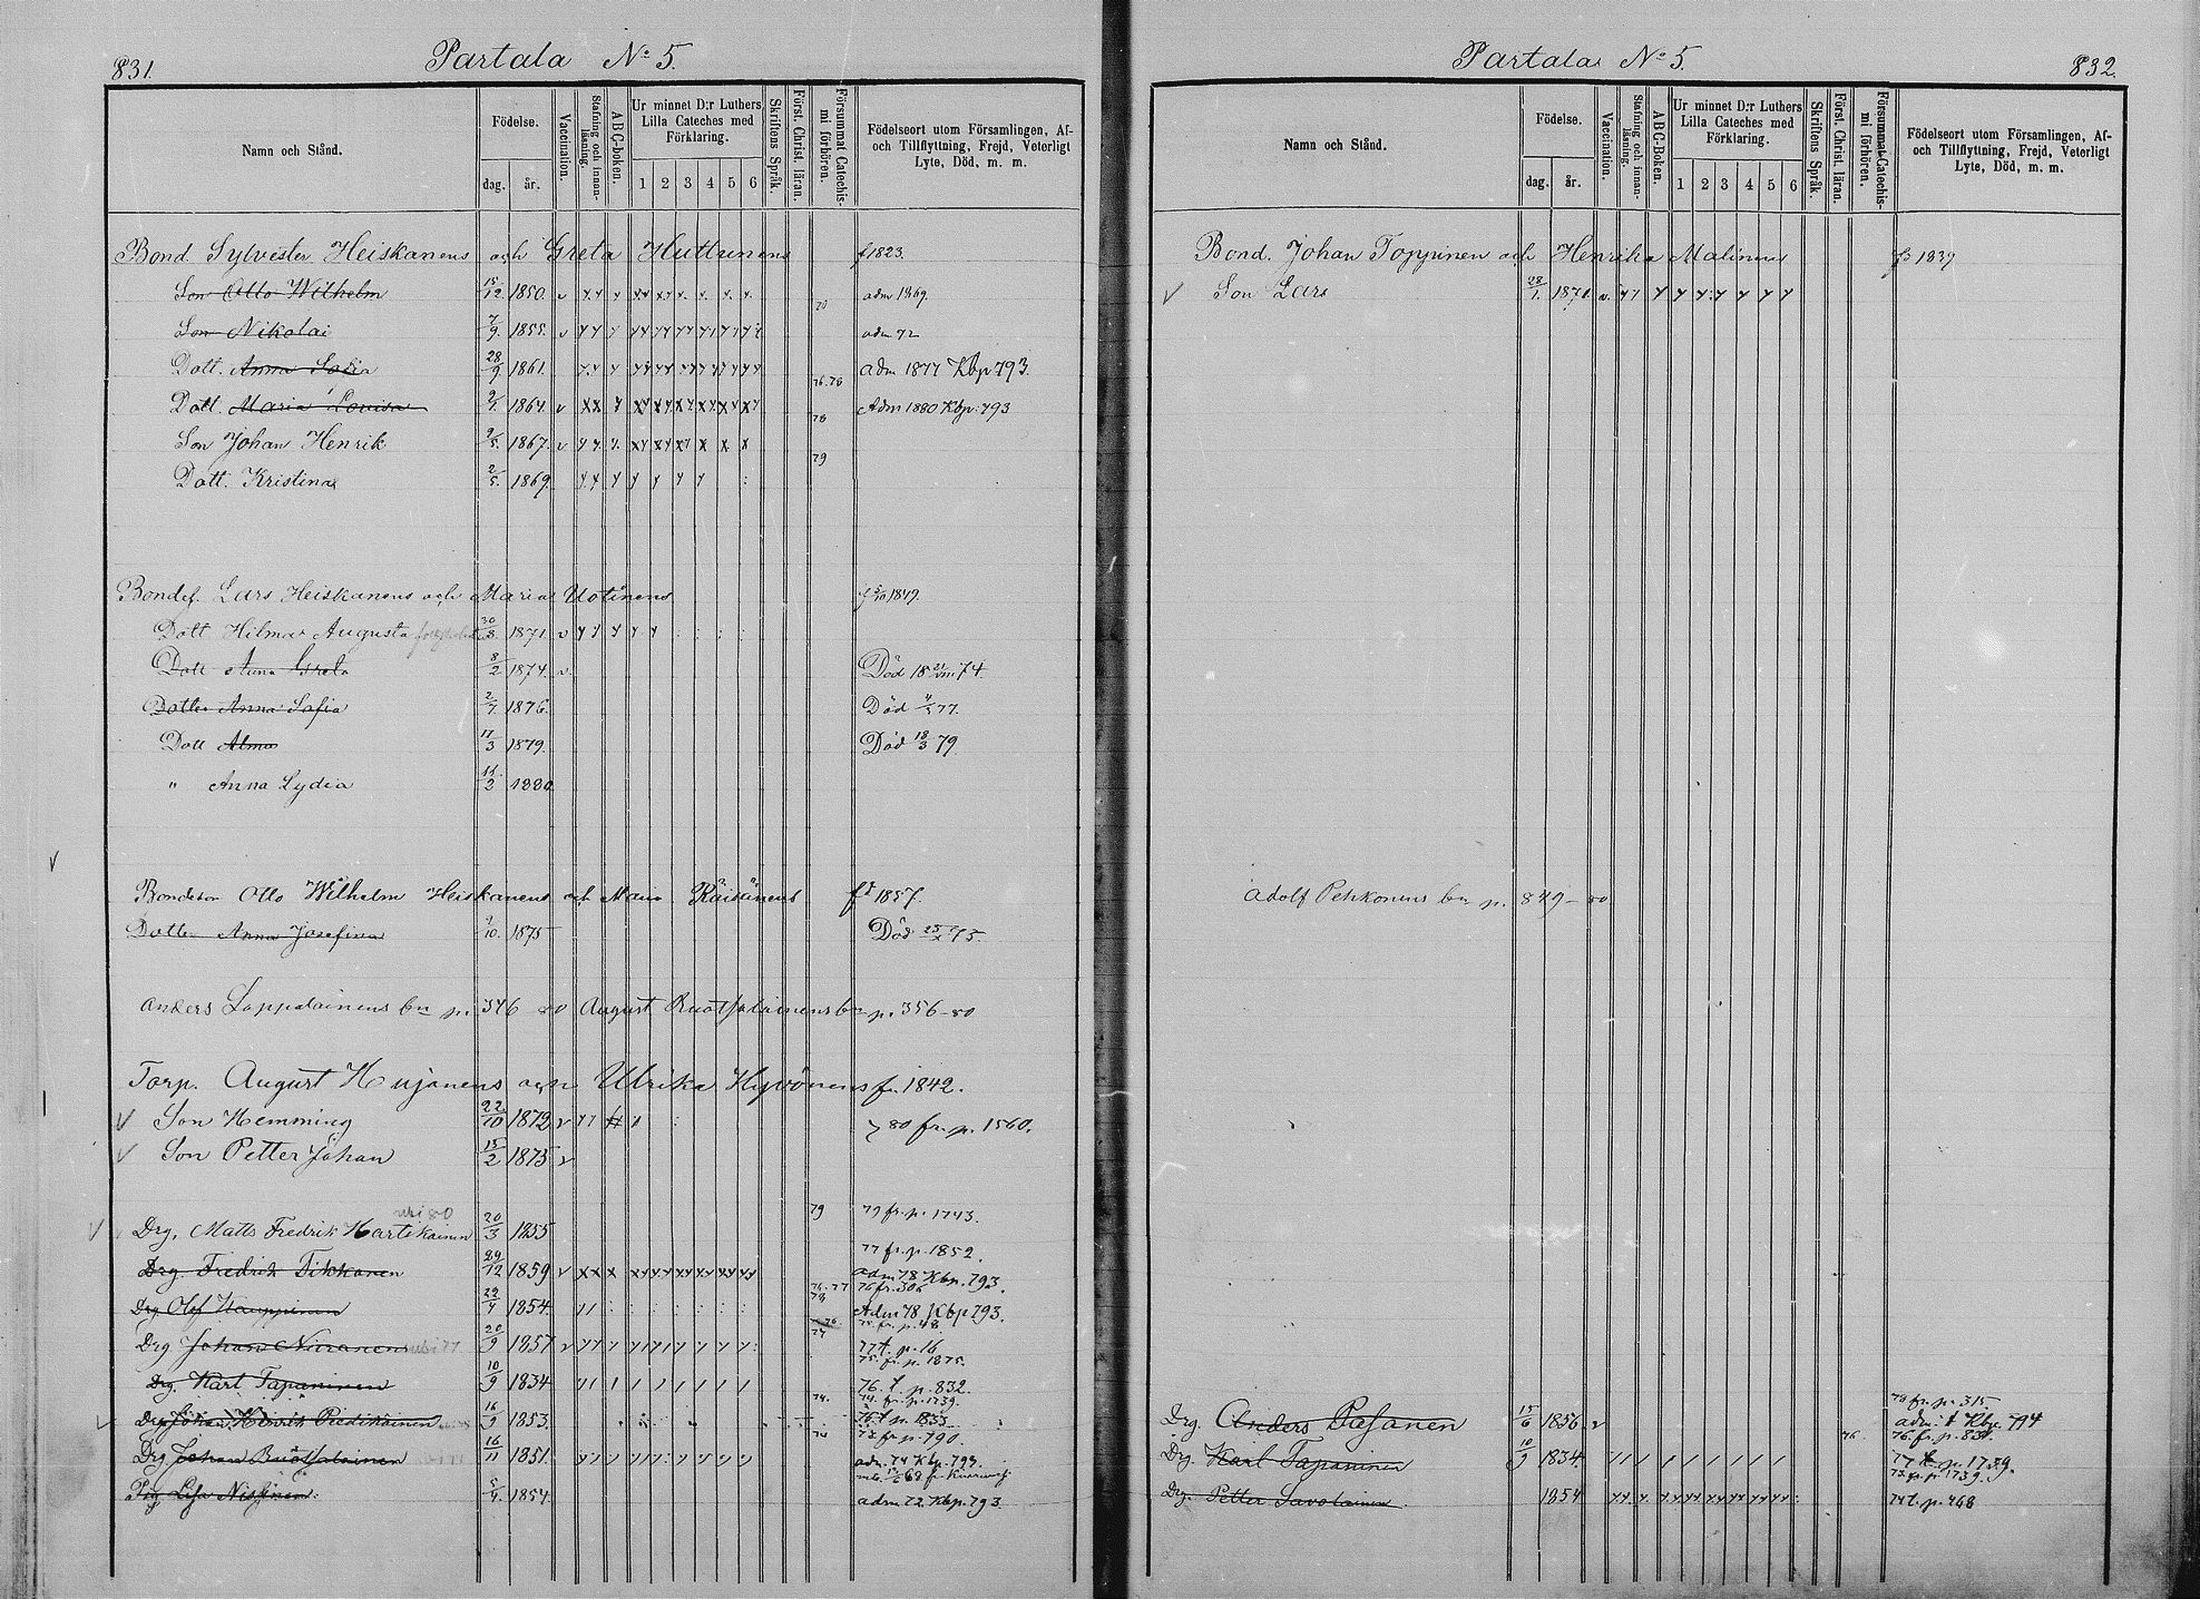 831.
Partala No 5.
Namn och Stånd.
Födelse.
dag. år.
Vaccination.
Stafning och innanläsning.
ABC-boken.
Ur minnet D:r Luthers Lilla Cateches med Förklaring.
1 2 3 4 5 6
Skriftens Språk.
Först. Christ. läran.
Försummat Catechismi förhören.
Födelseort utom Församlingen, Af- och Tillflyttning, Frejd, Veterligt Lyte, Död, m. m.
Bond. Sylvester Heiskanens och Greta Huttunens f 1823.
Son Otto Wilhelm 15/12 1850. v 70 adm 1869.
Son Nikolai 7/9. 1855. v adm 72
Dott. Anna Sofia 28/9 1861. 76.78 adm 1877 Kbp 793.
Dott. Maria Lovisa 1864. v 78 Adm 1880 Kbp. 793
Son Johan Henrik 9/5. 1867. v 79
Dott. Kristina 2/5. 1869.
Bondes. Lars Heiskanens och Maria Uotinens 1849.
Dott Hilma Augusta 30/8. 1871. v
Dott Anna Greta 8/2 1874. v Död 18 74.
Dotter Anna Sofia 2/7. 1876. Död 77.
Dott Alma 17/3 1879. Död 18/3 79.
" Anna Lydia 11/2 1880
Bondeson Otto Wilhelm Heiskanens och Maria Räisänens f 1857.
Dotter Anna Josefina 1875 Död 75.
Anders Lappalainens bn p. 346 80 August Ruotsalainens bn p. 356-80
Torp. August Hujanens och Ulrika Hyvönens fr. 1842.
V Son Hemming 22/10 1872 v 80 fr. p. 1560.
V Son Petter Johan 15/2 1875 v
V Drg. Matts Fredrik Hartikainen 20/3 1855 79 79 fr. p. 1743.
77 fr. p. 1852.
Drg. Fredrik Tikkanen 29/12 1859 v adm 78 Kbp. 793.
76 fr. 306
Drg Olof Kauppinen 1854. Adm 78 Kbp 793.
75. fr. p. 48.
Drg Johan Niiranen 20/9 1857 v 77 t. p. 16
75. fr. p. 1875.
Drg. Karl Tapaninen 10/9 1834 76. t. p. 832.
74. fr. p. 1739.
Drg Johan Henrik Piedikäinen 16/9 1853.
72 fr. p. 790.
Drg Johan Ruotsalainen 16/11 1851. adm. 74 Kbp. 793.
Pig Lisa Nissinen 1854. adm 72. Kbp. 793.
832.
Partala No 5.
Namn och Stånd.
Födelse.
dag. år.
Vaccination.
Stafning och innanläsning.
ABC-Boken.
Ur minnet D:r Luthers Lilla Cateches med Förklaring.
1 2 3 4 5 6
Skriftens Språk.
Först. Christ. läran.
Försummat Catechismi förhören.
Födelseort utom Församlingen, Af- och Tillflyttning, Frejd, Veterligt Lyte, Död, m. m.
Bond. Johan Toppinen och Henrika Malinens 1839
V Son Lars 28/1. 1871. v.
Adolf Pehkonens bn p. 849-80
78 fr. p. 315.
Drg. Anders Pasanen 15/6 1856 v adm. Kbp. 794
76. fr. p. 831.
Drg. Karl Tapaninen 10/9 1834. 76. 77 t. p. 1739.
73. fr. p. 1739.
Drg. Petter Savolainen 1854 74 t. p. 468